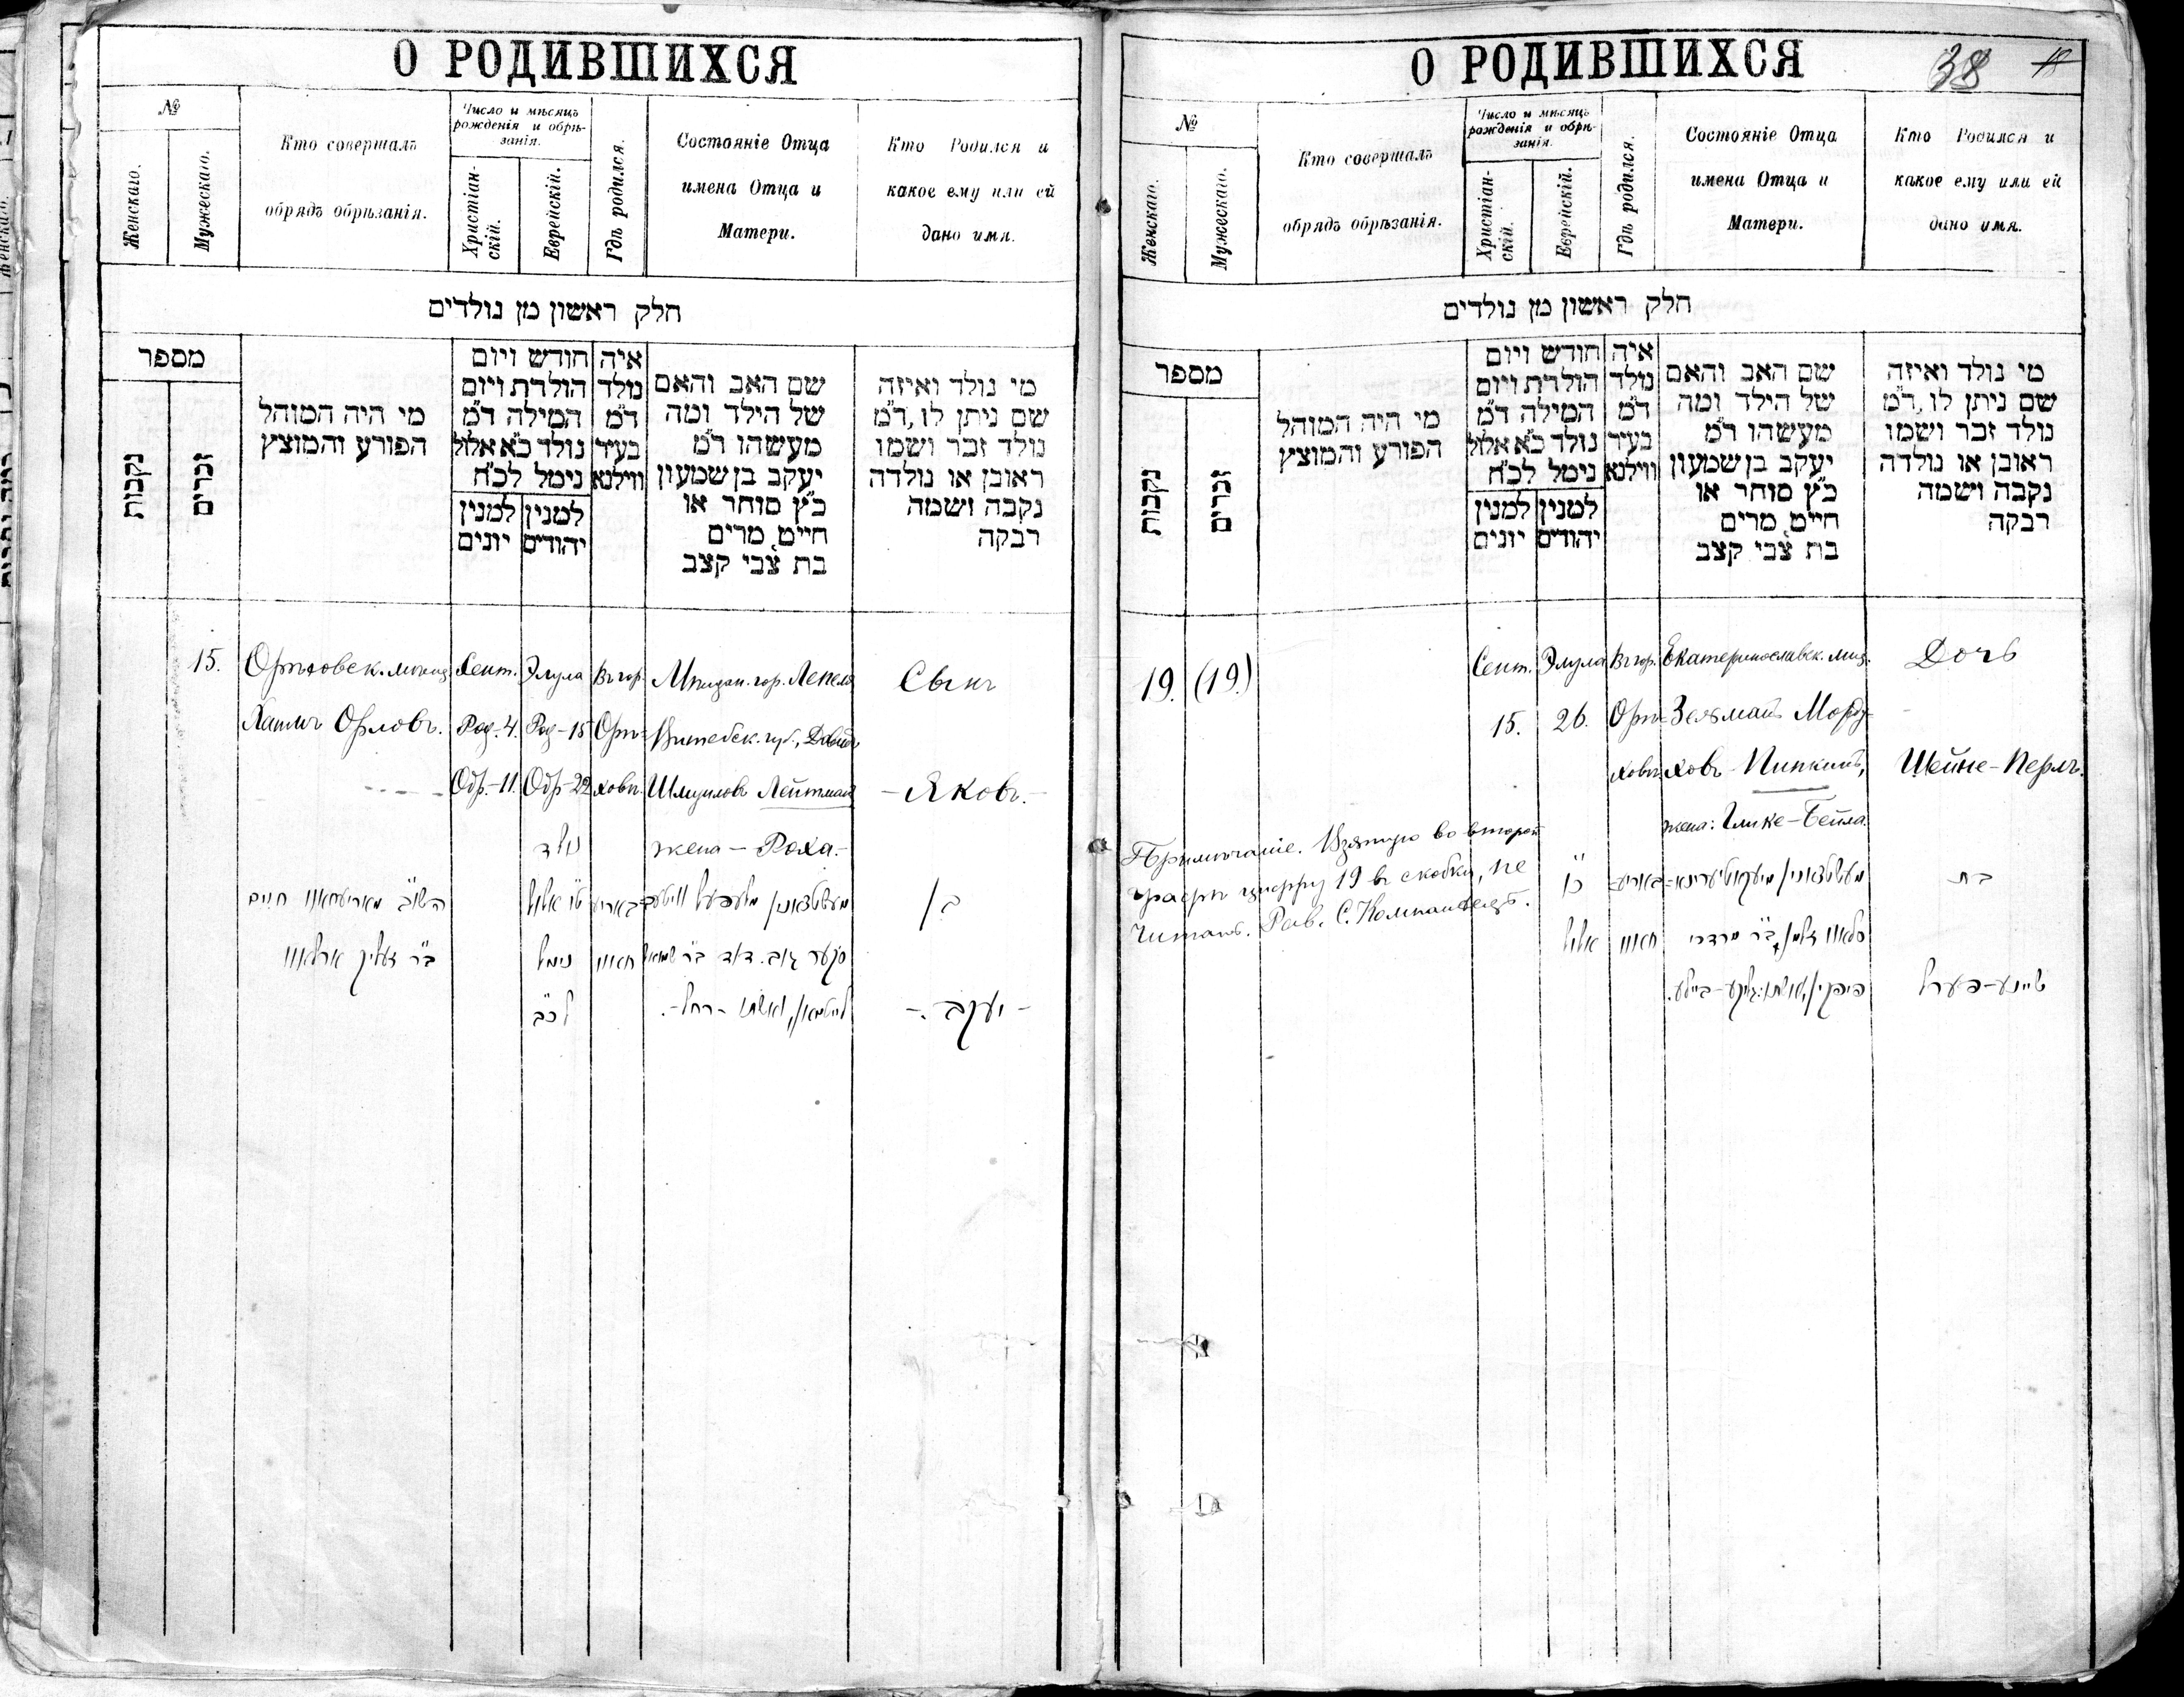 О РОДИВШИХСЯ
№
Женскаго.
Мужескаго.
Кто совершалъ
обрядъ обрѣзанія.
Число и мѣсяцъ
рожденія и обрѣ-
занія.
Христіан-
скій.
Еврейскій.
Гдѣ родился.
Состояніе Отца
имена Отца и
Матери.
Кто Родился и
какое ему или ей
дано имя.
חלק ראשון מן נולדים
מספר
נקבות
זכרים
מי היה המוהל
הפורע והמוצץ
חודש ויום
הולדת ויום
המילה ד״מ
נולד כ״א אלול
נימל לכ״ח
למנין
יונים
למנין
יהודים
איה
נולד
ד״מ
בעיר
ווילנא
שם האב והאם
של הילד ומה
מעשהו ד״מ
יעקב בן שמעון
כ״ץ סוחר או
חייט, מרים
בת צבי קצב
מי נולד ואיזה
שם ניתן לו, ד״מ
נולד זכר ושמו
ראובן או נולדה
נקבה ושמה
רבקה
15.
Орѣховск. мѣщ.
Хаимъ Орловъ.
Сент.
Род.-4.
Обр.-11.
Элула
Род-15
Обр-22
Въ гор.
Орѣ-
ховѣ.
Мѣщан. гор. Лепеля
Витебск. губ., Давидъ
Шмуиловъ Лейтманъ
жена — Роха.-
Сынъ
-Яковъ.-
השו״ב מאריעחאוו חיים
ב״ר זעליק ארלאוו
נולד
ט״ו אלול
נימול
לכ״ב
בן
-יעקב.-
О РОДИВШИХСЯ
38
18
№
Женскаго.
Мужескаго.
Кто совершалъ
обрядъ обрѣзанія.
Число и мѣсяцъ
рожденія и обрѣ-
занія.
Христіан-
скій.
Еврейскій.
Гдѣ родился.
Состояніе Отца
имена Отца и
Матери.
Кто Родился и
какое ему или ей
дано имя.
חלק ראשון מן נולדים
מספר
נקבות
זכרים
מי היה המוהל
הפורע והמוצץ
חודש ויום
הולדת ויום
המילה ד״מ
נולד כ״א אלול
נימל לכ״ח
למנין
יונים
למנין
יהודים
איה
נולד
ד״מ
בעיר
ווילנא
שם האב והאם
של הילד ומה
מעשהו ד״מ
יעקב בן שמעון
כ״ץ סוחר או
חייט, מרים
בת צבי קצב
מי נולד ואיזה
שם ניתן לו, ד״מ
נולד זכר ושמו
ראובן או נולדה
נקבה ושמה
רבקה
19. (19.)
Сент.
15.
Элула
26.
Въ гор.
Орѣ-
ховѣ
Екатеринославск. мѣщ.
Зельманъ Морду-
ховъ Пипкинъ,
жена: Глике-Бейла.
Дочь
Шейне-Перлъ.
Примѣчаніе. Взятую во второй
графѣ цифру 19 въ скобки, не
читать. Рав. С. Компанеецъ.
כ״ו
אלול
בת
שיינע-פערל